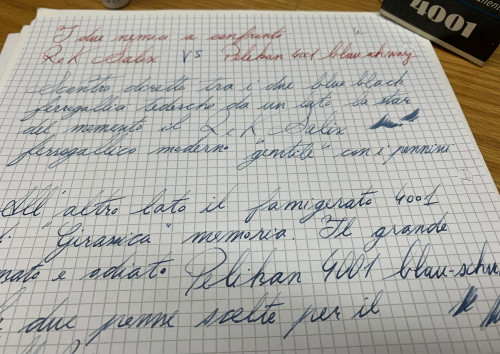 4001
I due nemici a confronto
R&K Salix VS Pelikan 4001 blau-schwarz
Scontro diretto tra i due blue black
ferrogallici tedesche da un lato la star
del momento il R&K Salix
ferrogallico moderno "gentile" con i pennini
All'altro lato il famigerato 4001
"Giurassica" memoria. Il grande
amato e odiato Pelikan 4001 blau-schw
due penne scelte per il